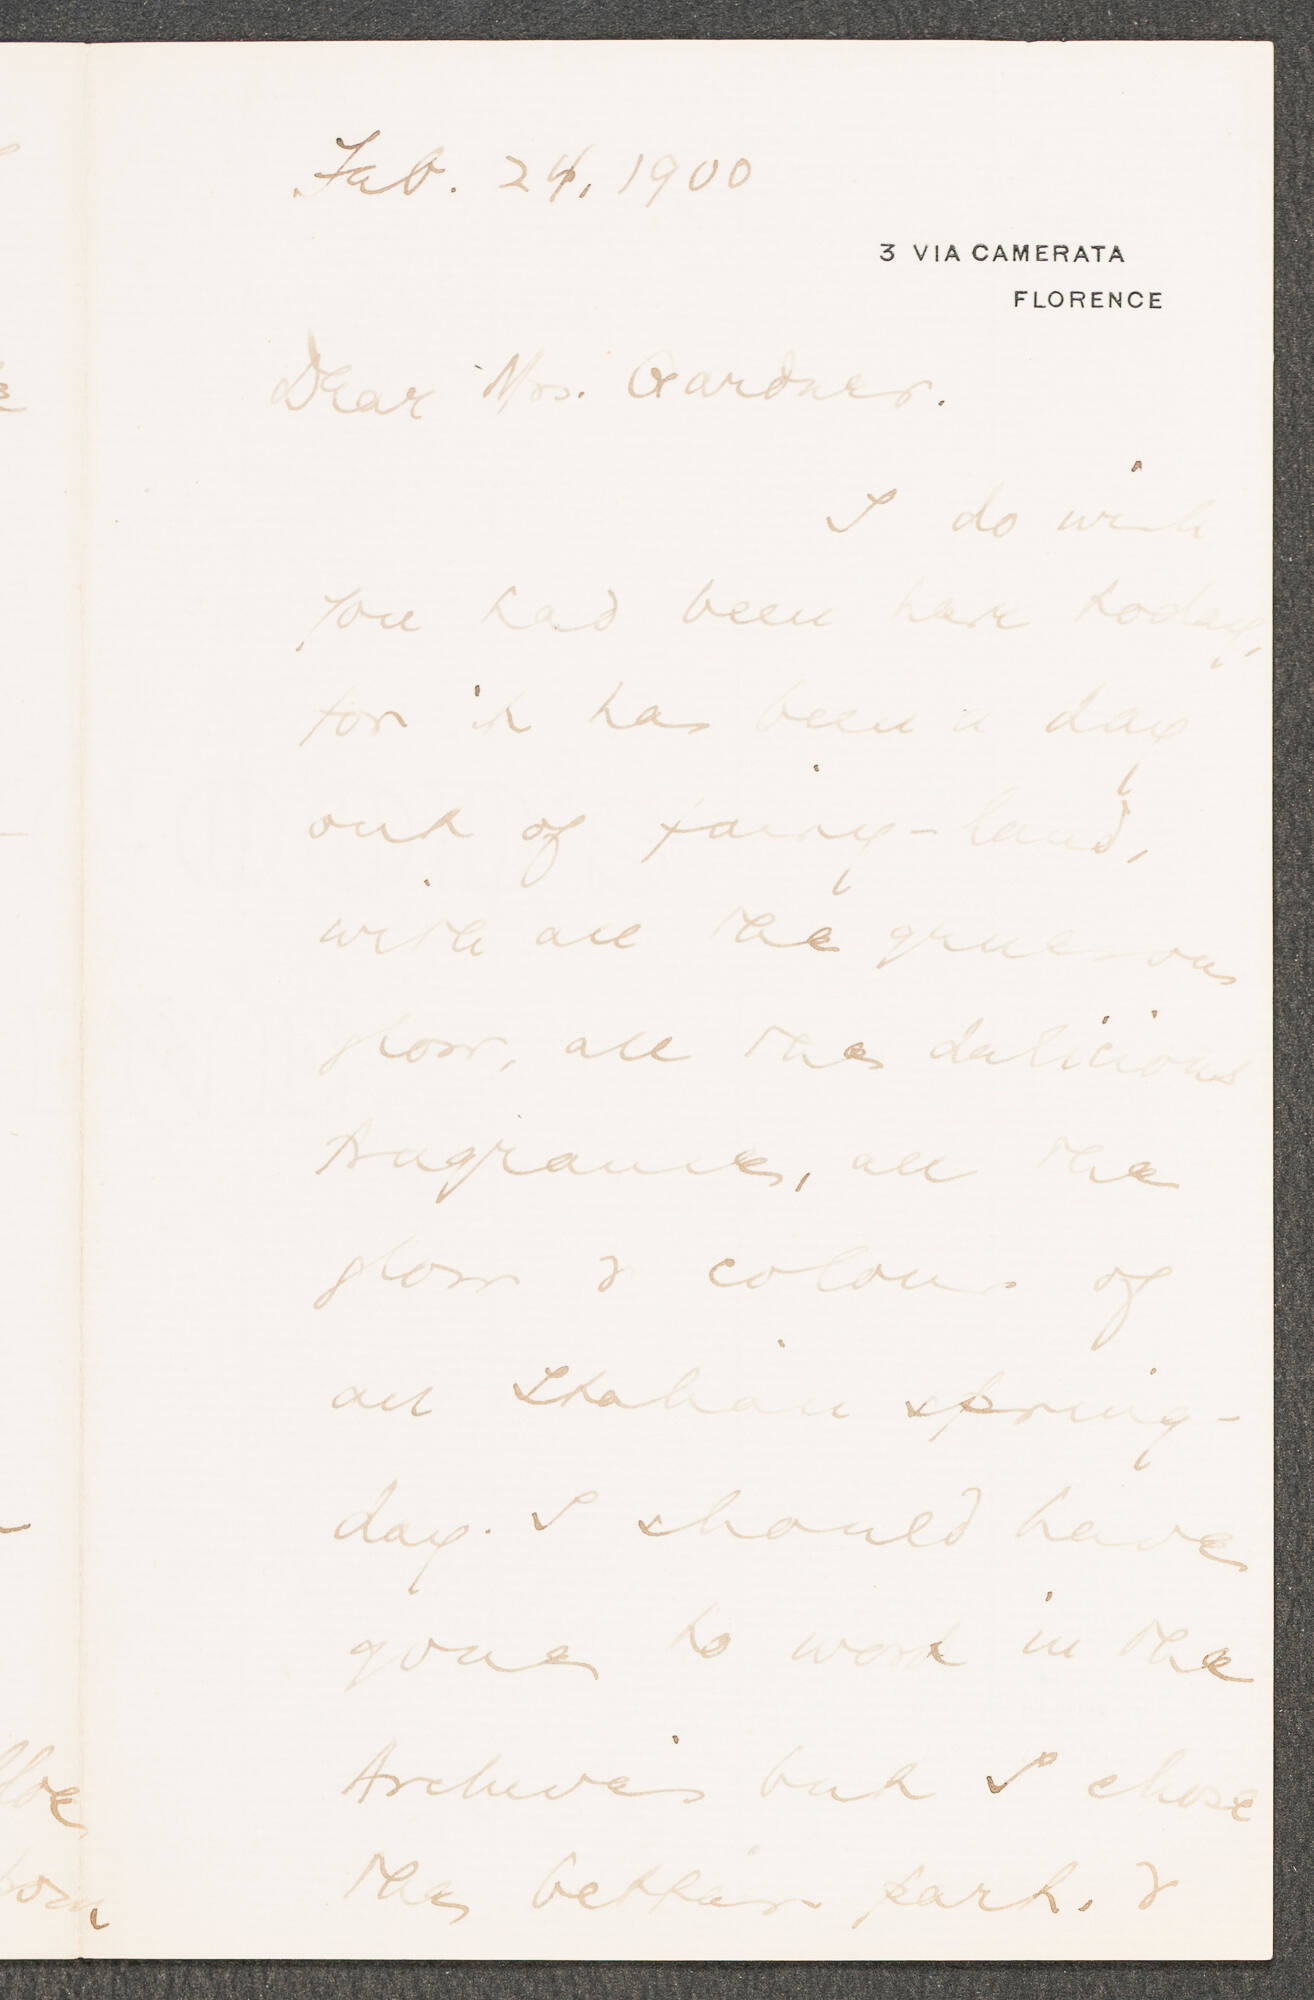 Feb. 24, 1900
3 VIA CAMERATA
FLORENCE
Dear Mrs. Gardner.
I do wish
you had been here today,
for it has been a day
out of fairy-land,
with all the
glow, all the delicious
fragrance, all the
glow & colour of
an Italian spring-
day. I should have
gone to work in the
Archives but I chose
the better part. &